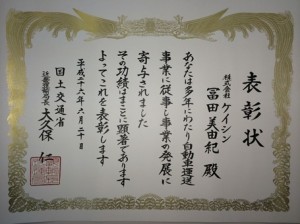 表彰状
株式会社ケイシン
冨田美由紀 殿
あなたは多年にわたり自動車運送
事業に従事し事業の発展に
寄与されました
その功績はまことに顕著であります
よってこれを表彰します
平成二十六年六月二十日
国土交通省
近畿運輸局長 大久保 仁